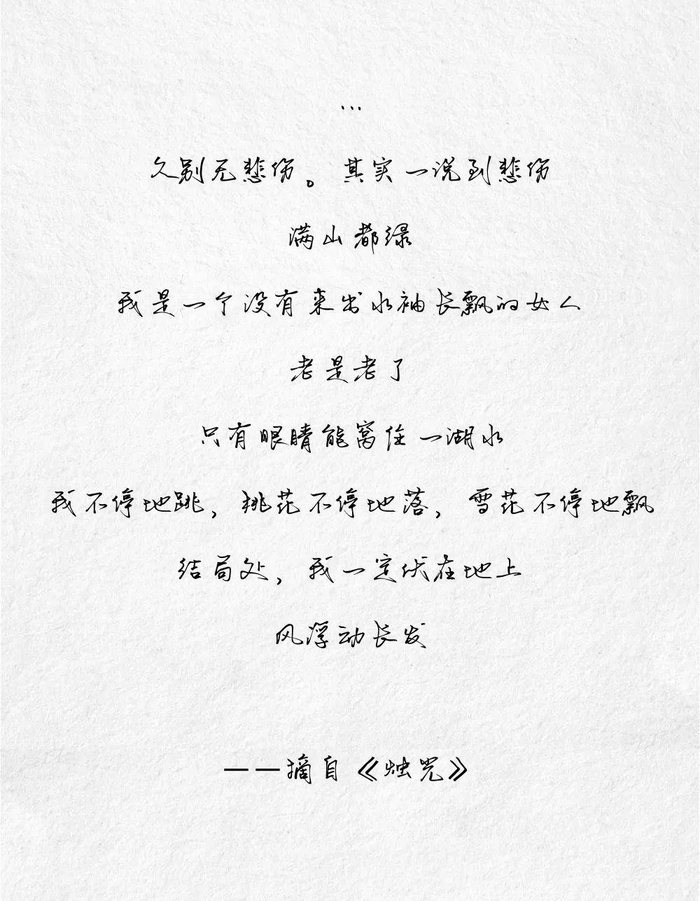 ...
久别无悲伤。其实一说到悲伤
满山都绿
我是一个没有来出水袖长飘的女人
老是老了
只有眼睛能窝住一湖水
我不停地跳，桃花不停地落，雪花不停地飘
结局处，我一定伏在地上
风浮动长发
——摘自《烛光》